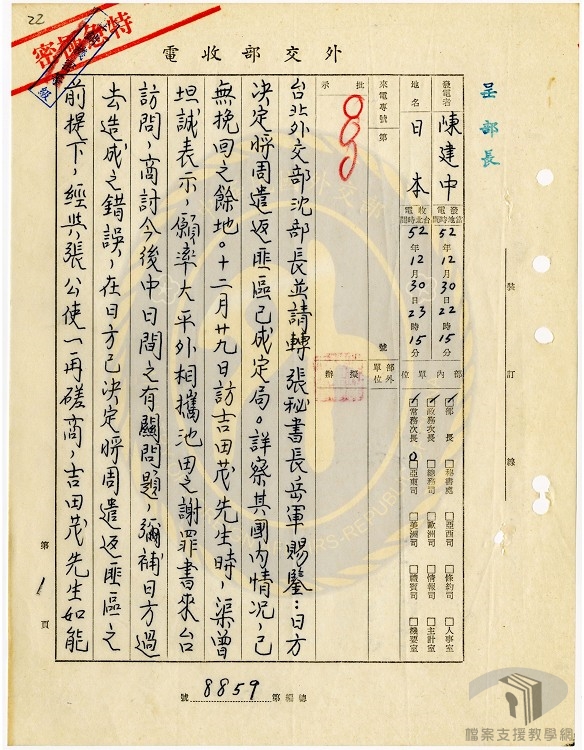 22
特急極密
外交部收電
呈部長
發電者 陳建中
地名 日本
來電專號 第 號
發電當地時間 52年12月30日22時15分
收電台北時間 52年12月30日23時15分
批示
擬辦
部內單位
部外單位
部長 政務次長 常務次長
秘書處 總務司 亞東司
亞西司 歐洲司 美洲司
條約司 情報司 禮賓司
人事室 主計室 機要室
台北外交部沈部長並請轉張秘書長岳軍賜鑒：日方
決定將周遣返匪區已成定局。詳察其國內情況，已
無挽回之餘地。十二月廿九日訪吉田茂先生時，渠曾
坦誠表示，願率大平外相攜池田之謝罪書來台
訪問，商討今後中日間之有關問題，彌補日方過
去造成之錯誤，在日方已決定將周遣返匪區之
前提下，經與張公使一再磋商，吉田茂先生如能
裝訂線
第1頁
總編第8859號
檔案支援教學網